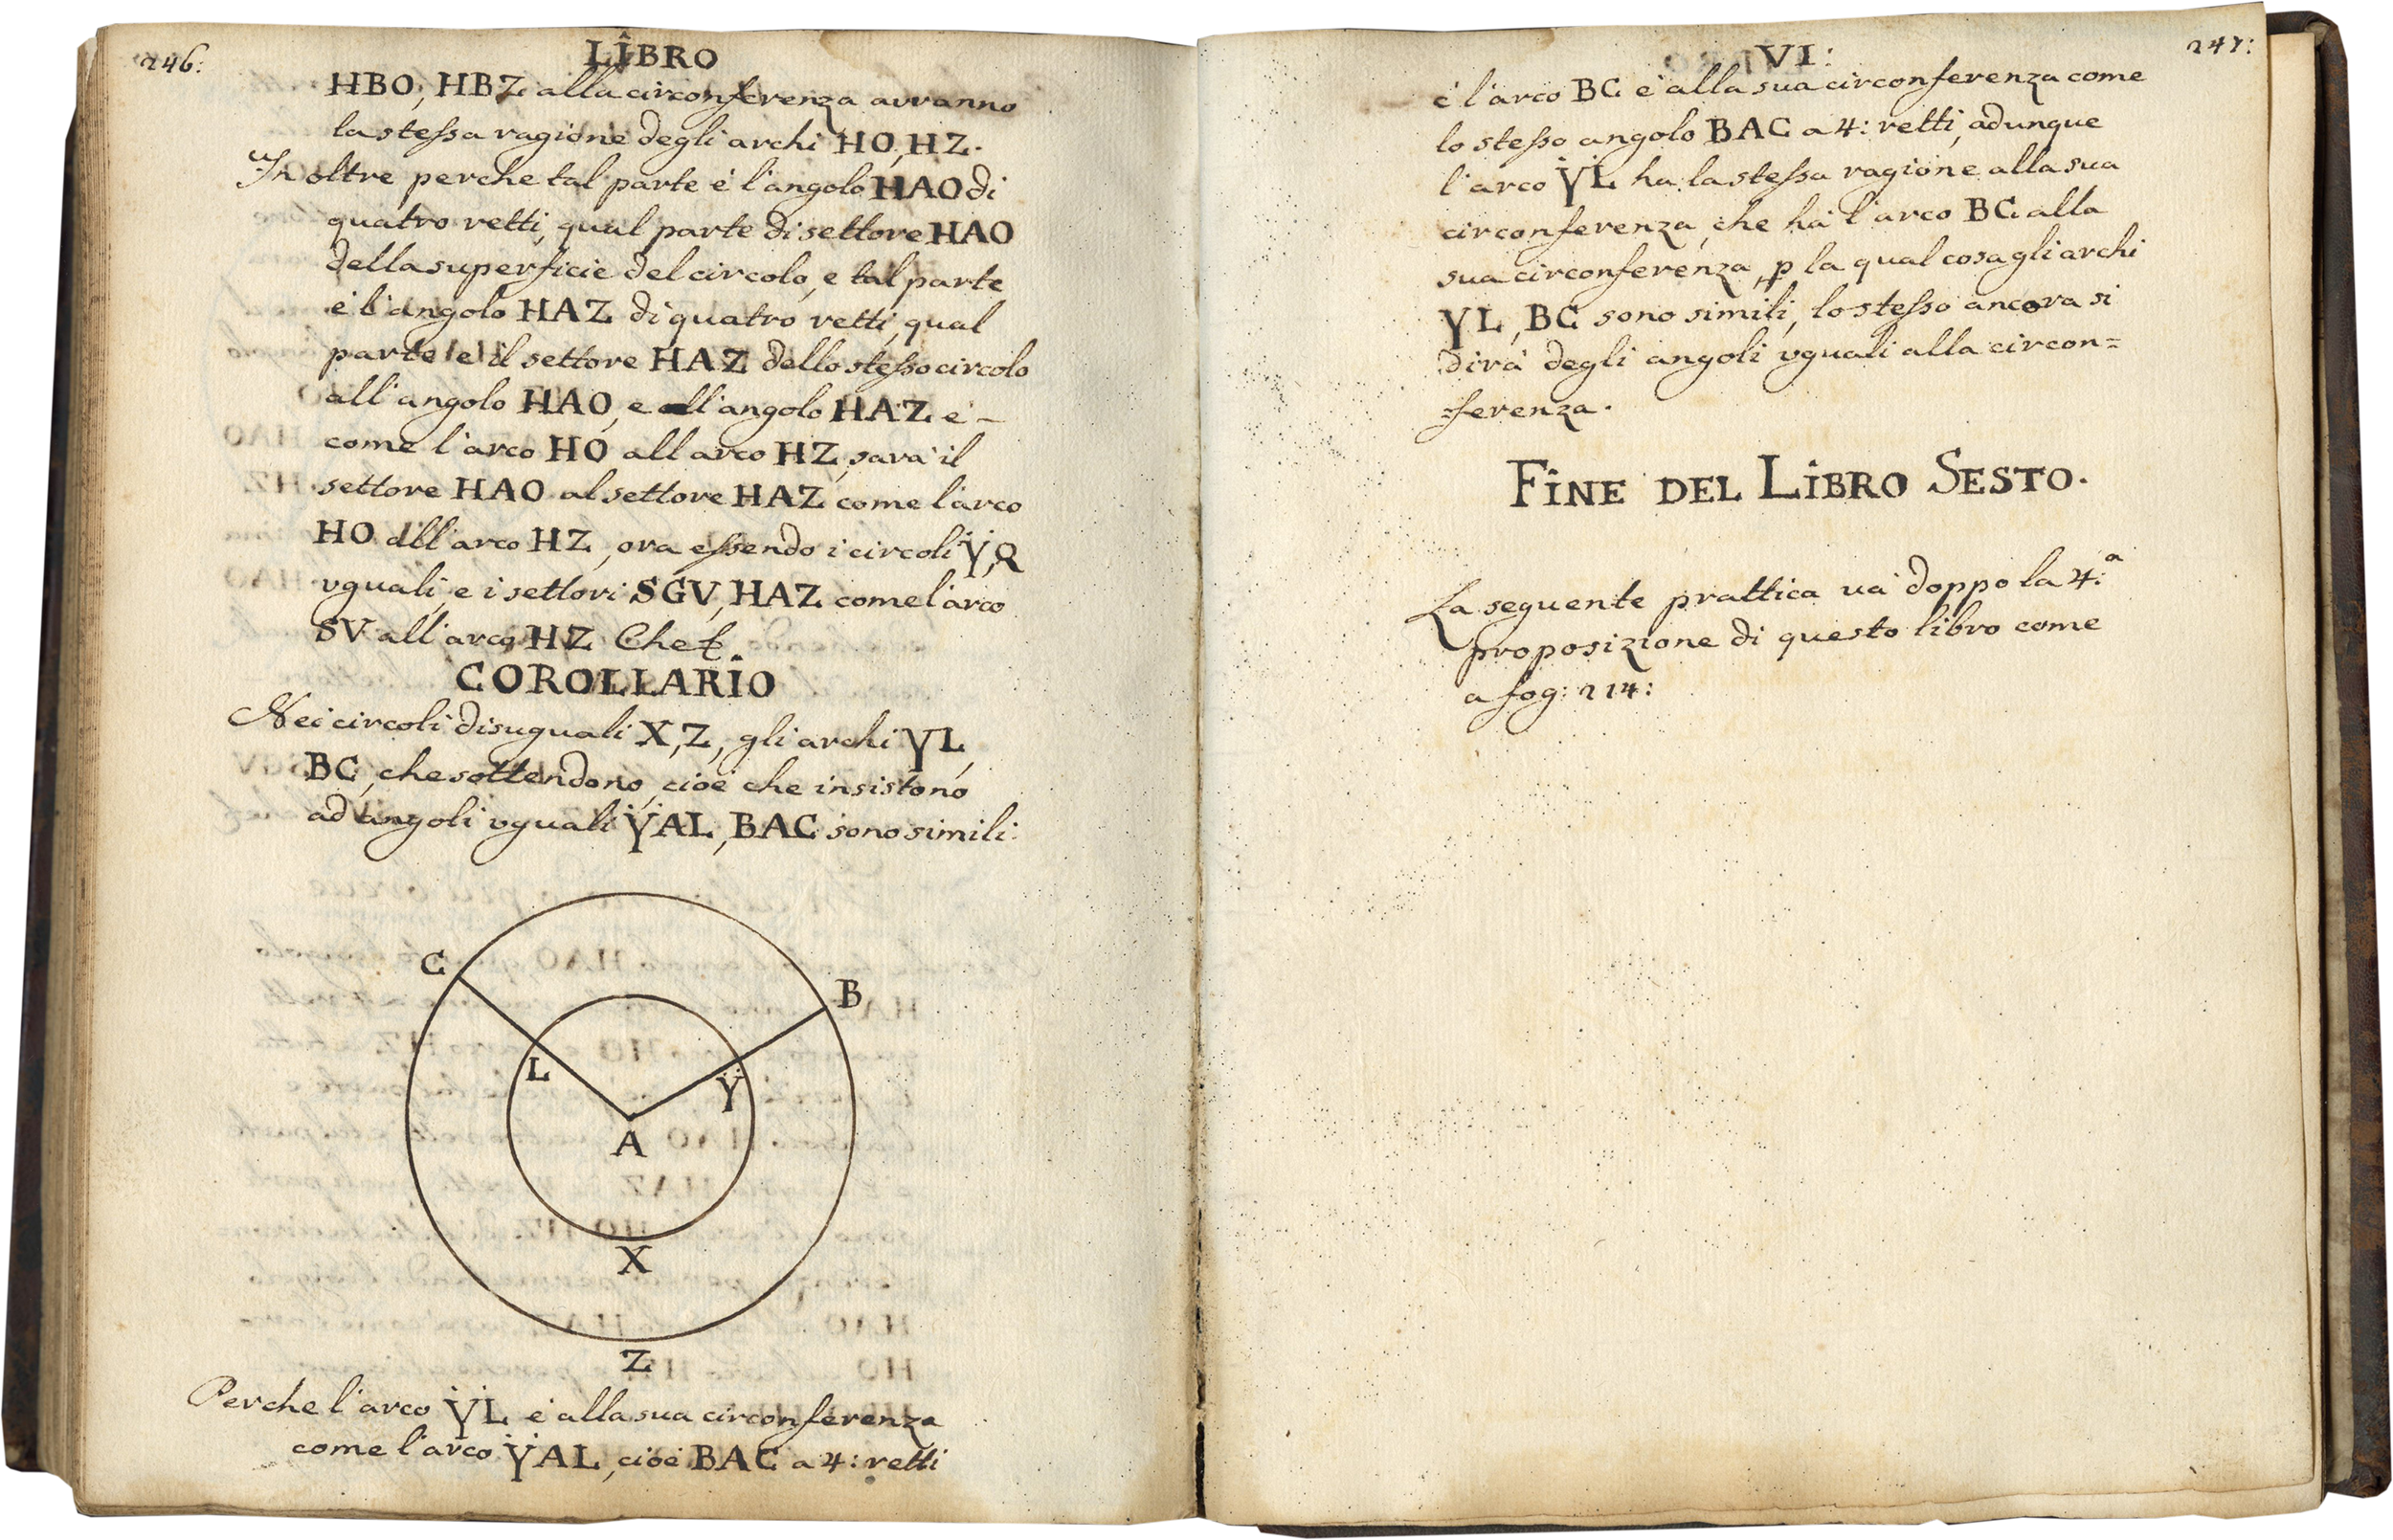 246:
LIBRO
HBO, HBZ alla circonferenza avranno
la stessa ragione degli archi HO, HZ.
In oltre perche tal parte è l'angolo HAO di
quatro retti, qual parte di settore HAO
della superficie del circolo, e tal parte
è l'angolo HAZ di quatro retti, qual
parte e il settore HAZ dello stesso circolo
all'angolo HAO, e all'angolo HAZ e' -
come l'arco HO all arco HZ, sarà il
settore HAO al settore HAZ, come l'arco
HO all'arco HZ, ora essendo i circoli Y, Q
vguali, e i settori SGV, HAZ come l'arco
SV all'arco HZ Che
COROLLARIO
Nei circoli disuguali X, Z, gli archi YL,
BC, che sottendono, cioè che insistono
ad angoli vguali YAL, BAC sono simili:
C
B
L
Y
A
X
Z
Perche l'arco YL è alla sua circonferenza
come l'arco YAL, cioè BAC a 4: retti
247:
VI:
è l'arco BC è alla sua circonferenza come
lo stesso angolo BAC a 4: retti, adunque
l'arco YL ha la stessa ragione alla sua
circonferenza, che hà l'arco BC alla
sua circonferenza, p la qual cosa gli archi
YL, BC sono simili, lo stesso ancora si
dirà degli angoli vguali alla circon=
=ferenza.
FINE DEL LIBRO SESTO.
La seguente prattica và doppo la 4:a
proposizione di questo libro come
a fog: 214: